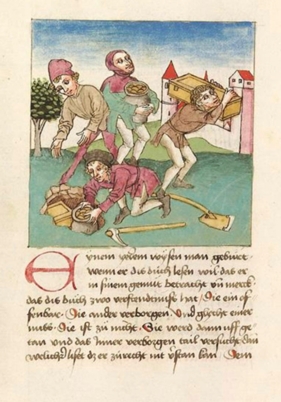 Aynem yeden wysen man gebürt
wenn er dis buch lesen wil das er
in sinem gemüt betracht vn merck
das dis büch zwo verstendtnus hat Die ein of
fenbar Die ander verborgen Vnd glycht einer
nuß Die ist zu nicht Sie werd dann uff ge
tan vnd das Inner verborgen tail versucht
welicher liset dz er zürecht nit verstan kan Dem